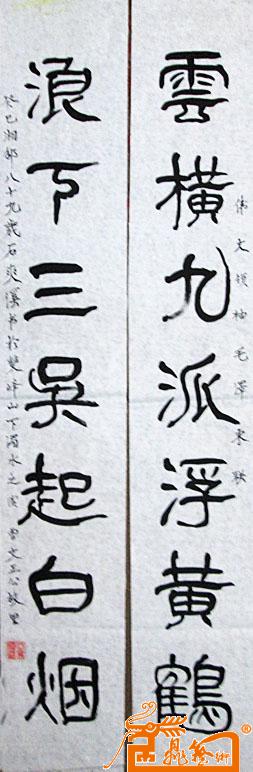 雲橫九派浮黃鶴
偉大領袖毛澤東联
浪下三吳起白烟
癸巳湘鄉八十九歲石爽溪书於雙峰山下湄水之濱 曾文正公故里